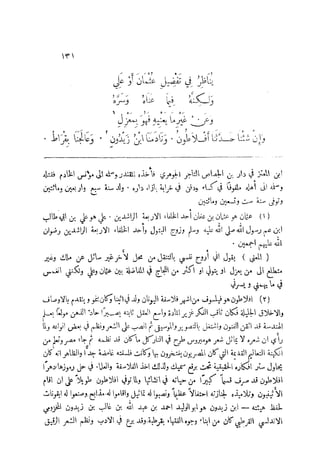 ١٣١
يُنَاظِرُ فِي تَفْضِيلِ عُثْمَانَ أَوْ عَلِي
وَلٰكِنَّهُ فِيمَا عَنَاهُ وَسَرَّهُ
وَعَنْ غَيْرِ مَا يَعْنِيهِ فَهْوَ بِمَعْزِلِ
وإن شئنا حدثنا أفلاطون . ونادمنا ابن زيدون . وعالجنا بقراط .
ابن المعتز في دار بن الجصاص التاجر الجوهري فأخذه المقتدر وسلمه الى مؤنس الخادم فقتله
وسلمه الى أهله ملفوفًا في كساء ودفن في خرابة بازاء داره . ولد سنة سبع وأربعين ومائتين
وتوفى سنة ست وتسعين ومائتين
(١) عثمان هو عثمان بن عفان أحد الخلفاء الاربعة الراشدين . علي هو علي بن ابي طالب
ابن عم رسول الله صلى الله عليه وسلم وزوج البتول وأحد الخلفاء الاربعة الراشدين رضوان
الله عليهم اجمعين .
( المعنى ) يقول اني أروح نفسي بالتنقل من محل لآخر غير سائل عن ملك وغير
متطلع الى من يعزل او يتولى او اكثر من اللجاج في المفاضلة بين عثمان وعلي ولكنني انغمس
في ما يهمني ويسرني
(٢) افلاطون هو فيلسوف من اشهر فلاسفة اليونان ولد في اثينا وكان تقو ويتقدم بالاوصاف
والاخلاق الجليلة فكان ثاقب الفكر غزير المادة واسع العقل ثابته بصيرًا حاد الذهن مولعًا بعلم
الهندسة قد اتقن الفنون واشتغل بالتصوير والموسيقى ثم انصب على الشعر ونظم في بعض انواعه ولما
رأى ان شعره لا يماثل شعر هوميروس طرح في النار كل ما كان قد نظمه ثم جاء مصر وتعلم من
الكهنة التعاليم القديمة التي كان المصريون يفتخرون بها وكانت فلسفته غامضة جدًا والظاهر انه كان
يحاول ستر أفكاره الحقيقية تحت برقع سميك ولذلك اخذ الفلاسفة والعلماء في حل رموزها دهرًا
افلاطون قد صرف قسمًا كبيرًا من حياته في اثينا ولما توفي افلاطون طويلاً على ان اقام
الأثينيون وتلاميذه لجنازته احتفالاً عظيماً ونصبوا له تماثيل واقاموا له مذابح وصنعوا له ايقونات
لحفظ هيئته — ابن زيدون هو ابو الوليد احمد بن عبد الله بن غالب بن زيدون المخزومي
الاندلسي القرطبي كان من ابناء وجوه الفقهاء بقرطبة وقد برع في الادب ونظم الشعر الرقيق